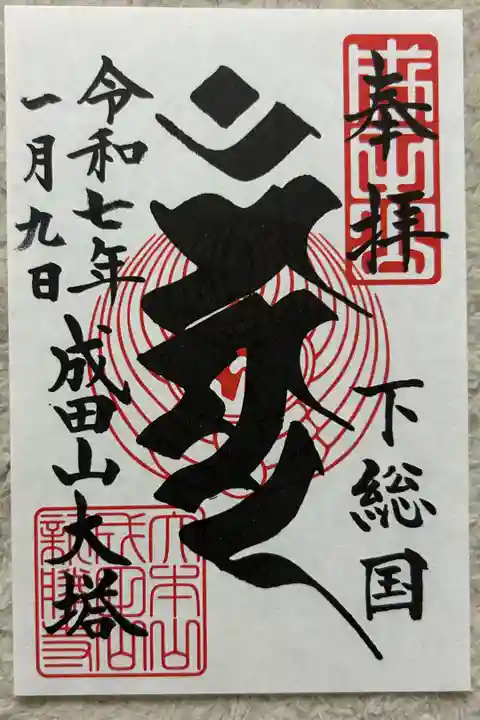 奉拝
下総国
令和七年
一月九日
成田山大塔
大本山
成田山
新勝寺